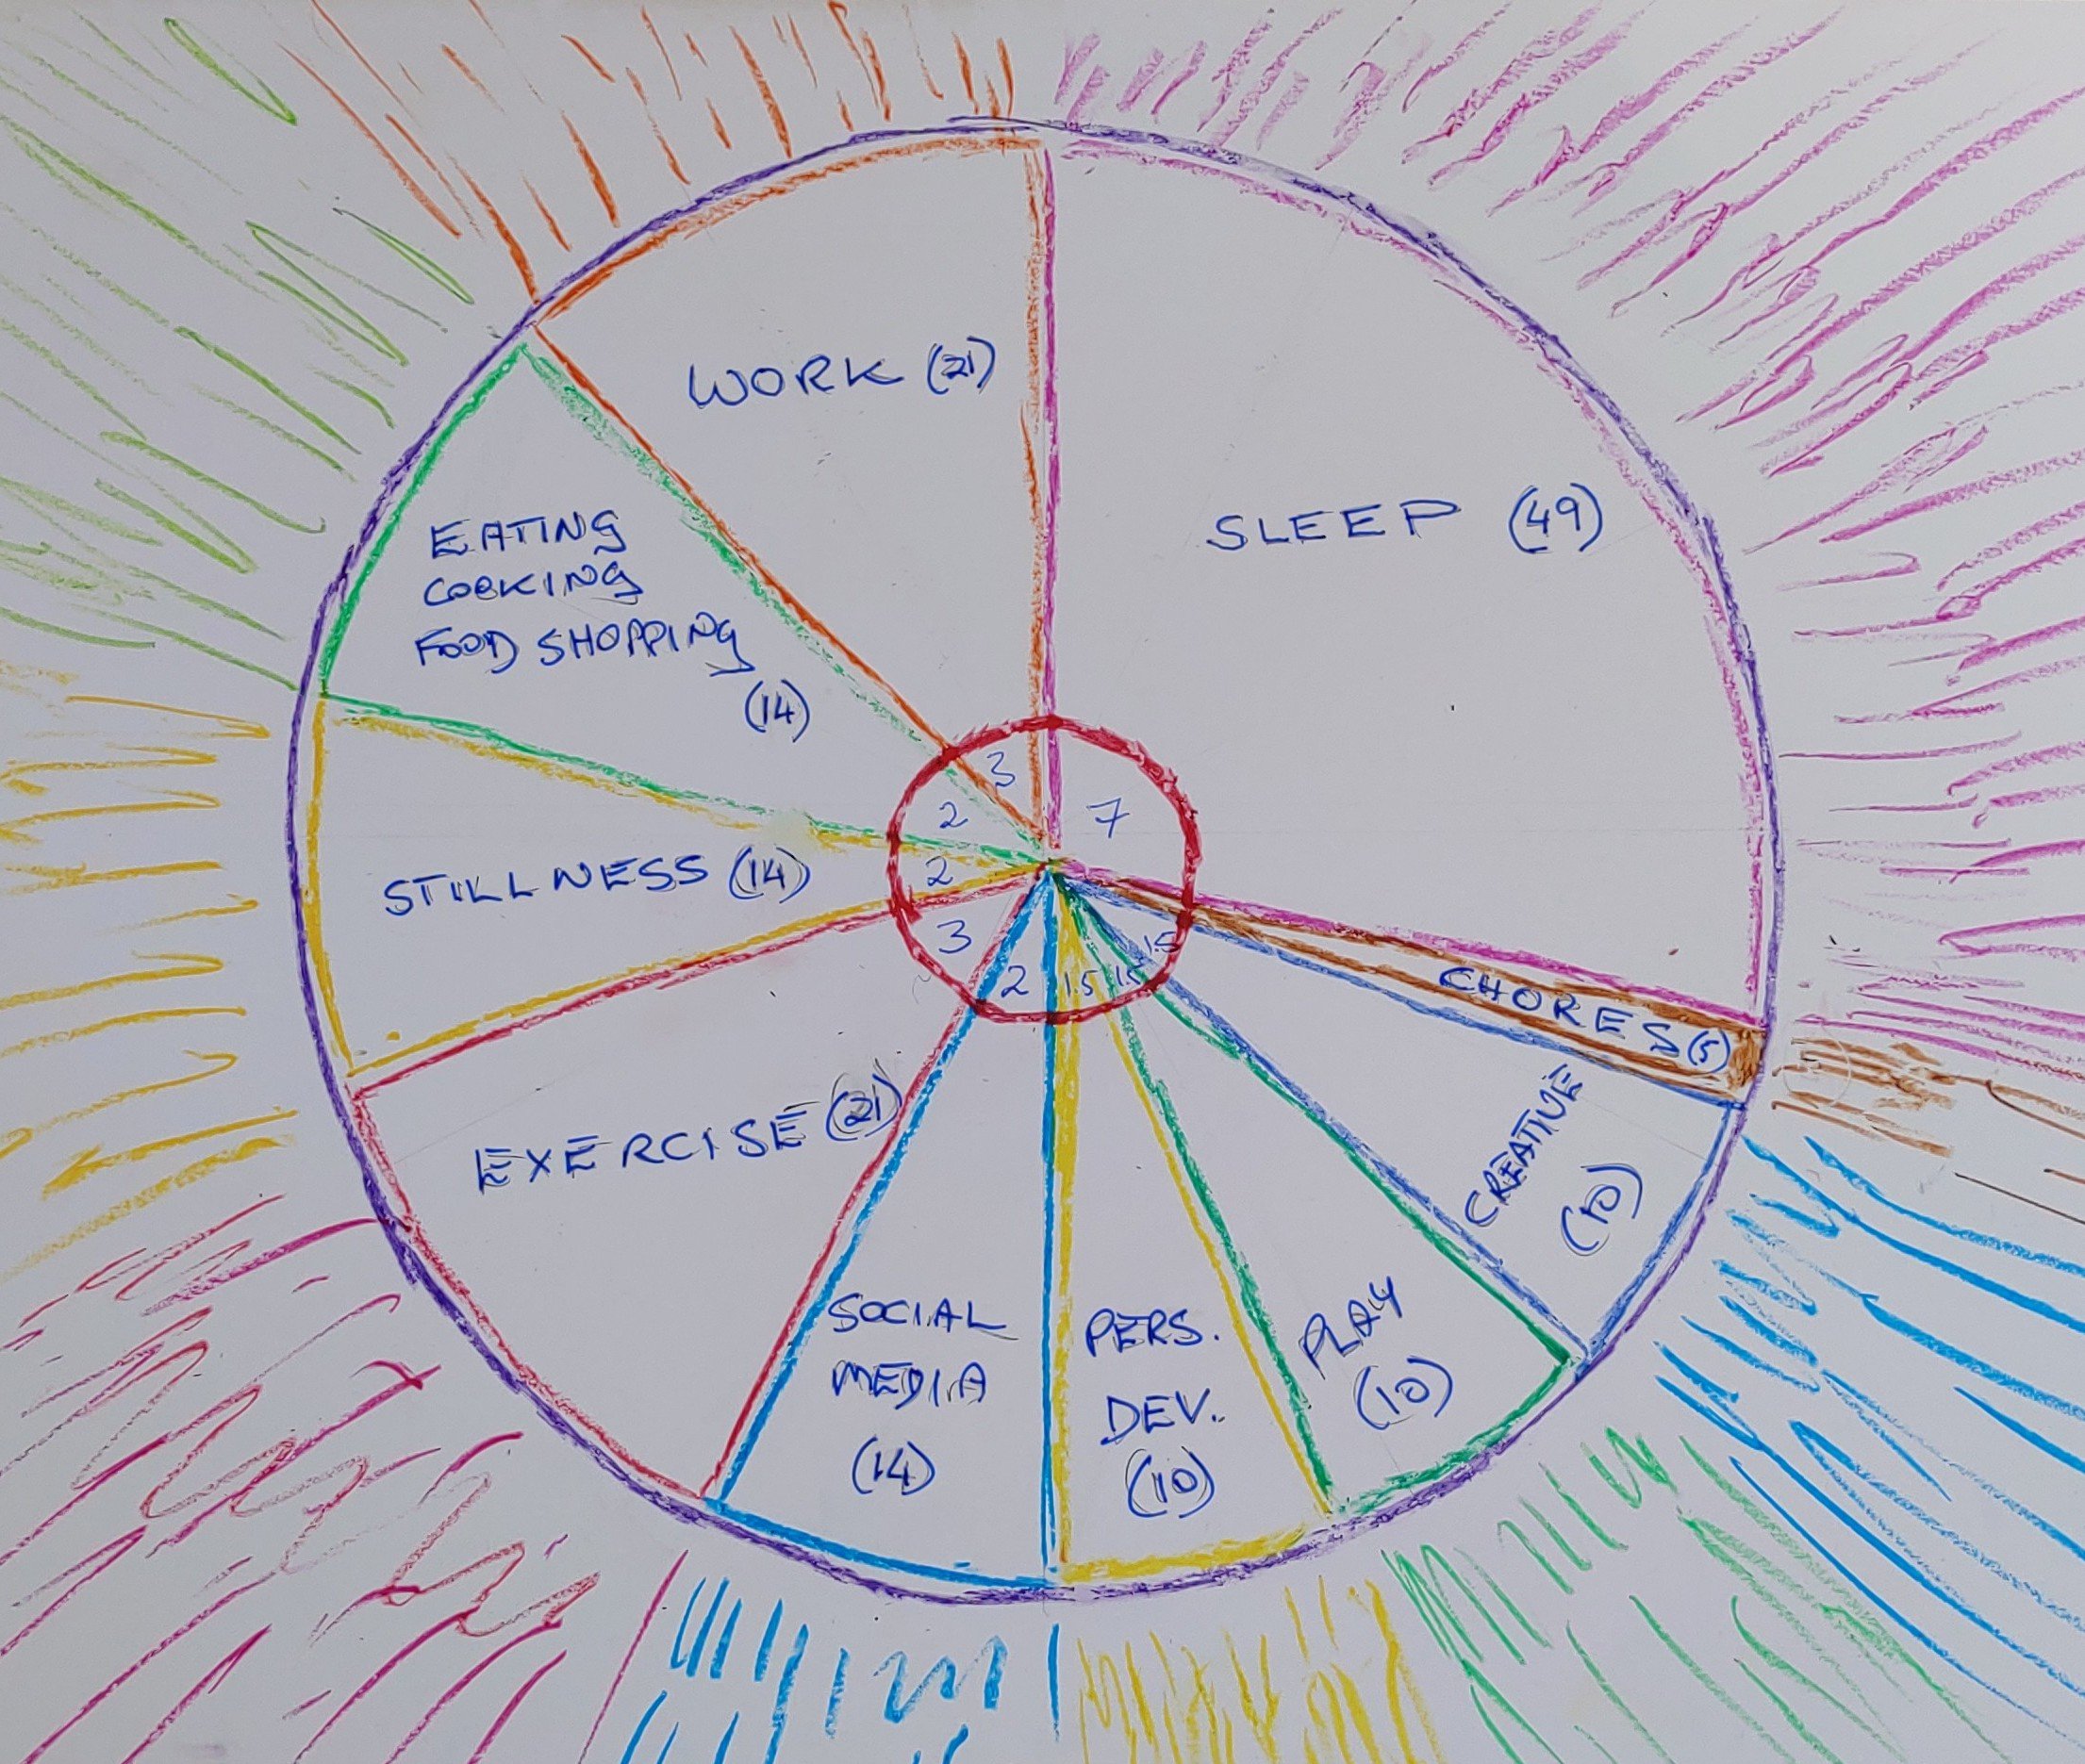 WORK (21)
SLEEP (49)
EATING
COOKING
FOOD SHOPPING
(14)
3
7
2
STILLNESS (14)
2
3
2
1.5
1.5
1.5
CHORES (5)
CREATIVE
(10)
EXERCISE (21)
SOCIAL
MEDIA
(14)
PERS.
DEV.
(10)
PLAY
(10)